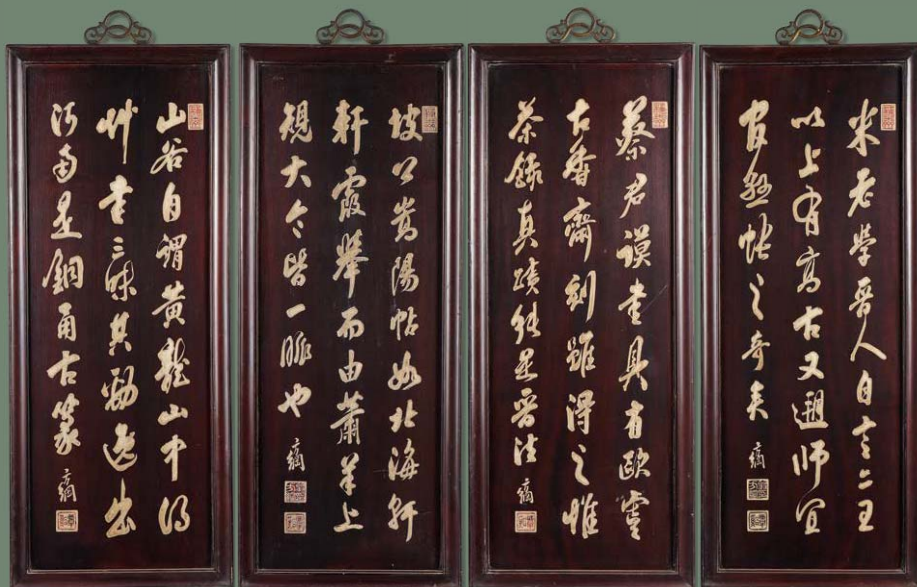 米老學晋人自言二王
以上有高古又遡師宜
官懸帳之奇矣
蔡君謨書具有歐虞
古香齋刻雖得之惟
茶錄真蹟純是晋法
坡公嵩陽帖如北海軒
軒霞舉而由蕭羊上
規大令皆一脉也
山谷自謂黃龍山中得
艸書三昧其勁逸出
是銅甬古篆